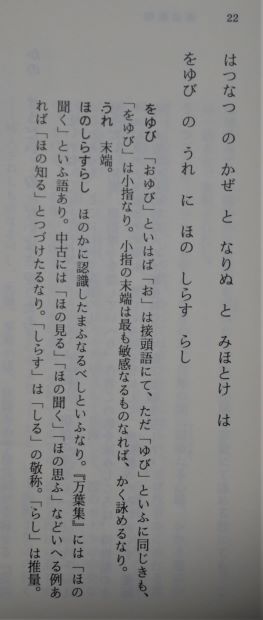 22
はつなつ の かぜ と なりぬ と みほとけ は
をゆび の うれ に ほの しらす らし
をゆび 「おゆび」といはば「お」は接頭語にて、ただ「ゆび」といふに同じきも、
「をゆび」は小指なり。小指の末端は最も敏感なるものなれば、かく詠めるなり。
うれ 末端。
ほのしらすらし ほのかに認識したまふなるべしといふなり。『万葉集』には「ほの
聞く」といふ語あり。中古には「ほの見る」「ほの聞く」「ほの思ふ」などいへる例あ
れば「ほの知る」とつづけたるなり。「しらす」は「しる」の敬称。「らし」は推量。